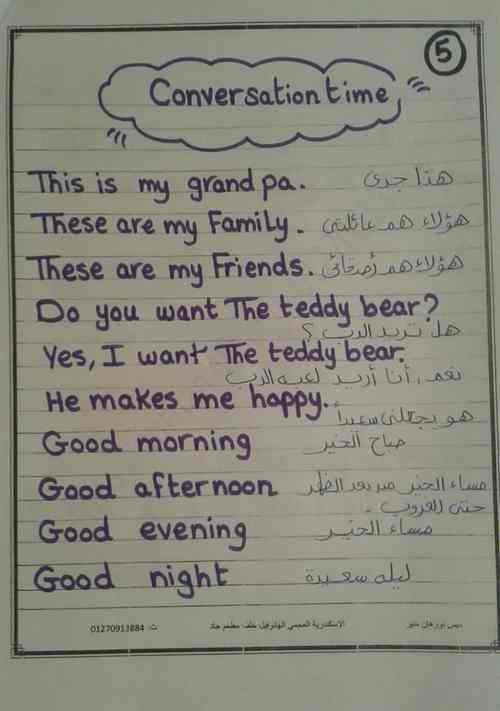 5
Conversation time
This is my grand pa. هذا جدى
These are my Family. هؤلاء هم عائلتى
These are my Friends. هؤلاء هم أصدقائى
Do you want The teddy bear?
هل تريد الدب ؟
Yes, I want The teddy bear.
نعم، أنا أريد لعبه الدب
He makes me happy.
هو يجعلنى سعيداً
Good morning صباح الخير
Good afternoon مساء الخير من بعد الظهر
حتى الغروب .
Good evening مساء الخير
Good night ليله سعيدة
ميس نورهان منير الاسكندرية العجمي الهانوفيل خلف مطعم جاد ت: 01270913884